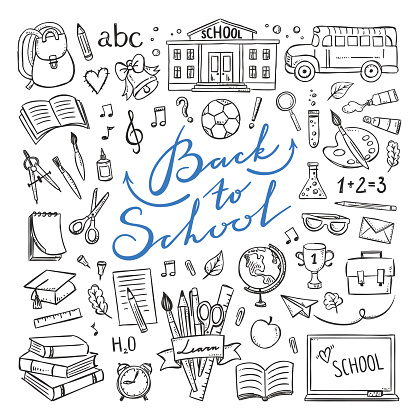 abc
SCHOOL
?
!
Back
to
School
1+2=3
1
H₂O
Learn
SCHOOL